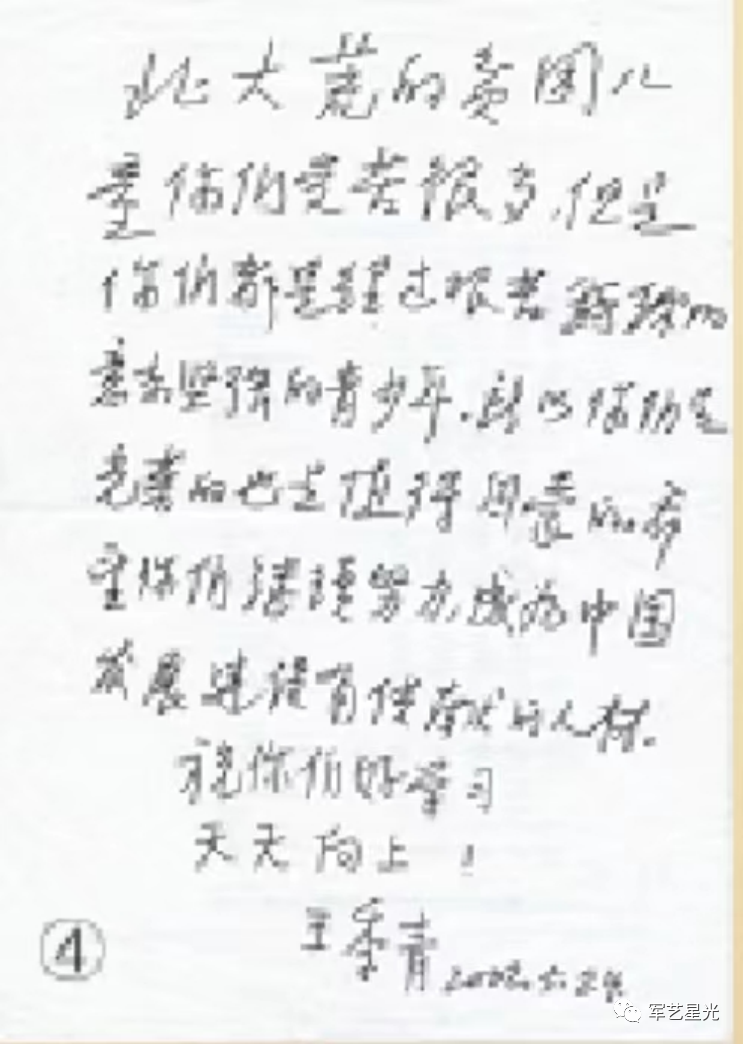 北大荒的贫困儿
童你们受苦很多，但是
你们都是经过艰苦锻炼的
意志坚强的青少年，所以你们是
光荣的也是值得同爱的，希
望你们继续努力成为中国
发展建设有使贡献的人材。
祝你们好学习
天天向上！
王季青 2002.5.24.
④
军艺星光